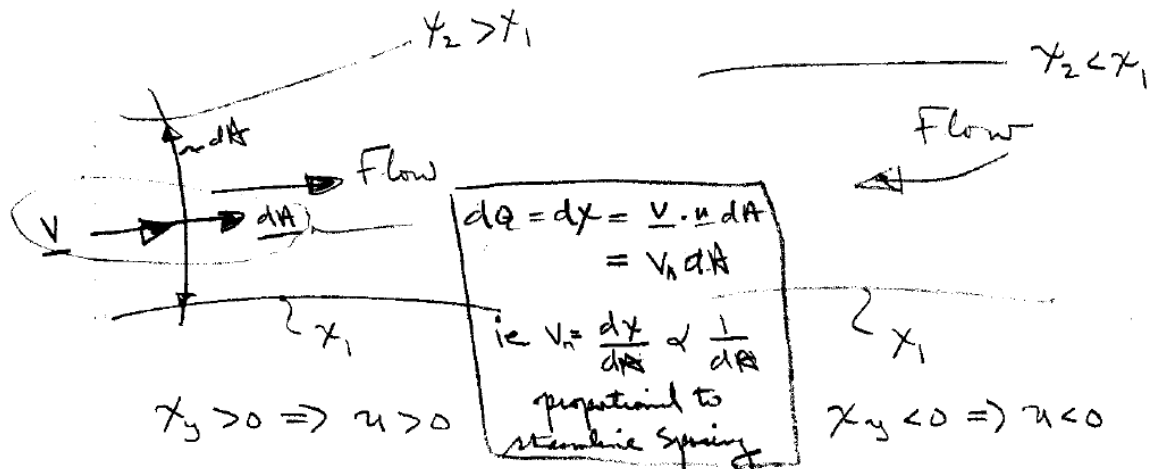 ψ₂ > ψ₁
ψ₂ < ψ₁
~ dA
Flow
Flow
V
dA
dQ = dψ = V · n dA
= Vₙ dA
ψ₁
ie Vₙ = dψ/dA ∝ 1/dA
ψ₁
proportional to
streamline Spacing
ψ_y > 0 => u > 0
ψ_y < 0 => u < 0